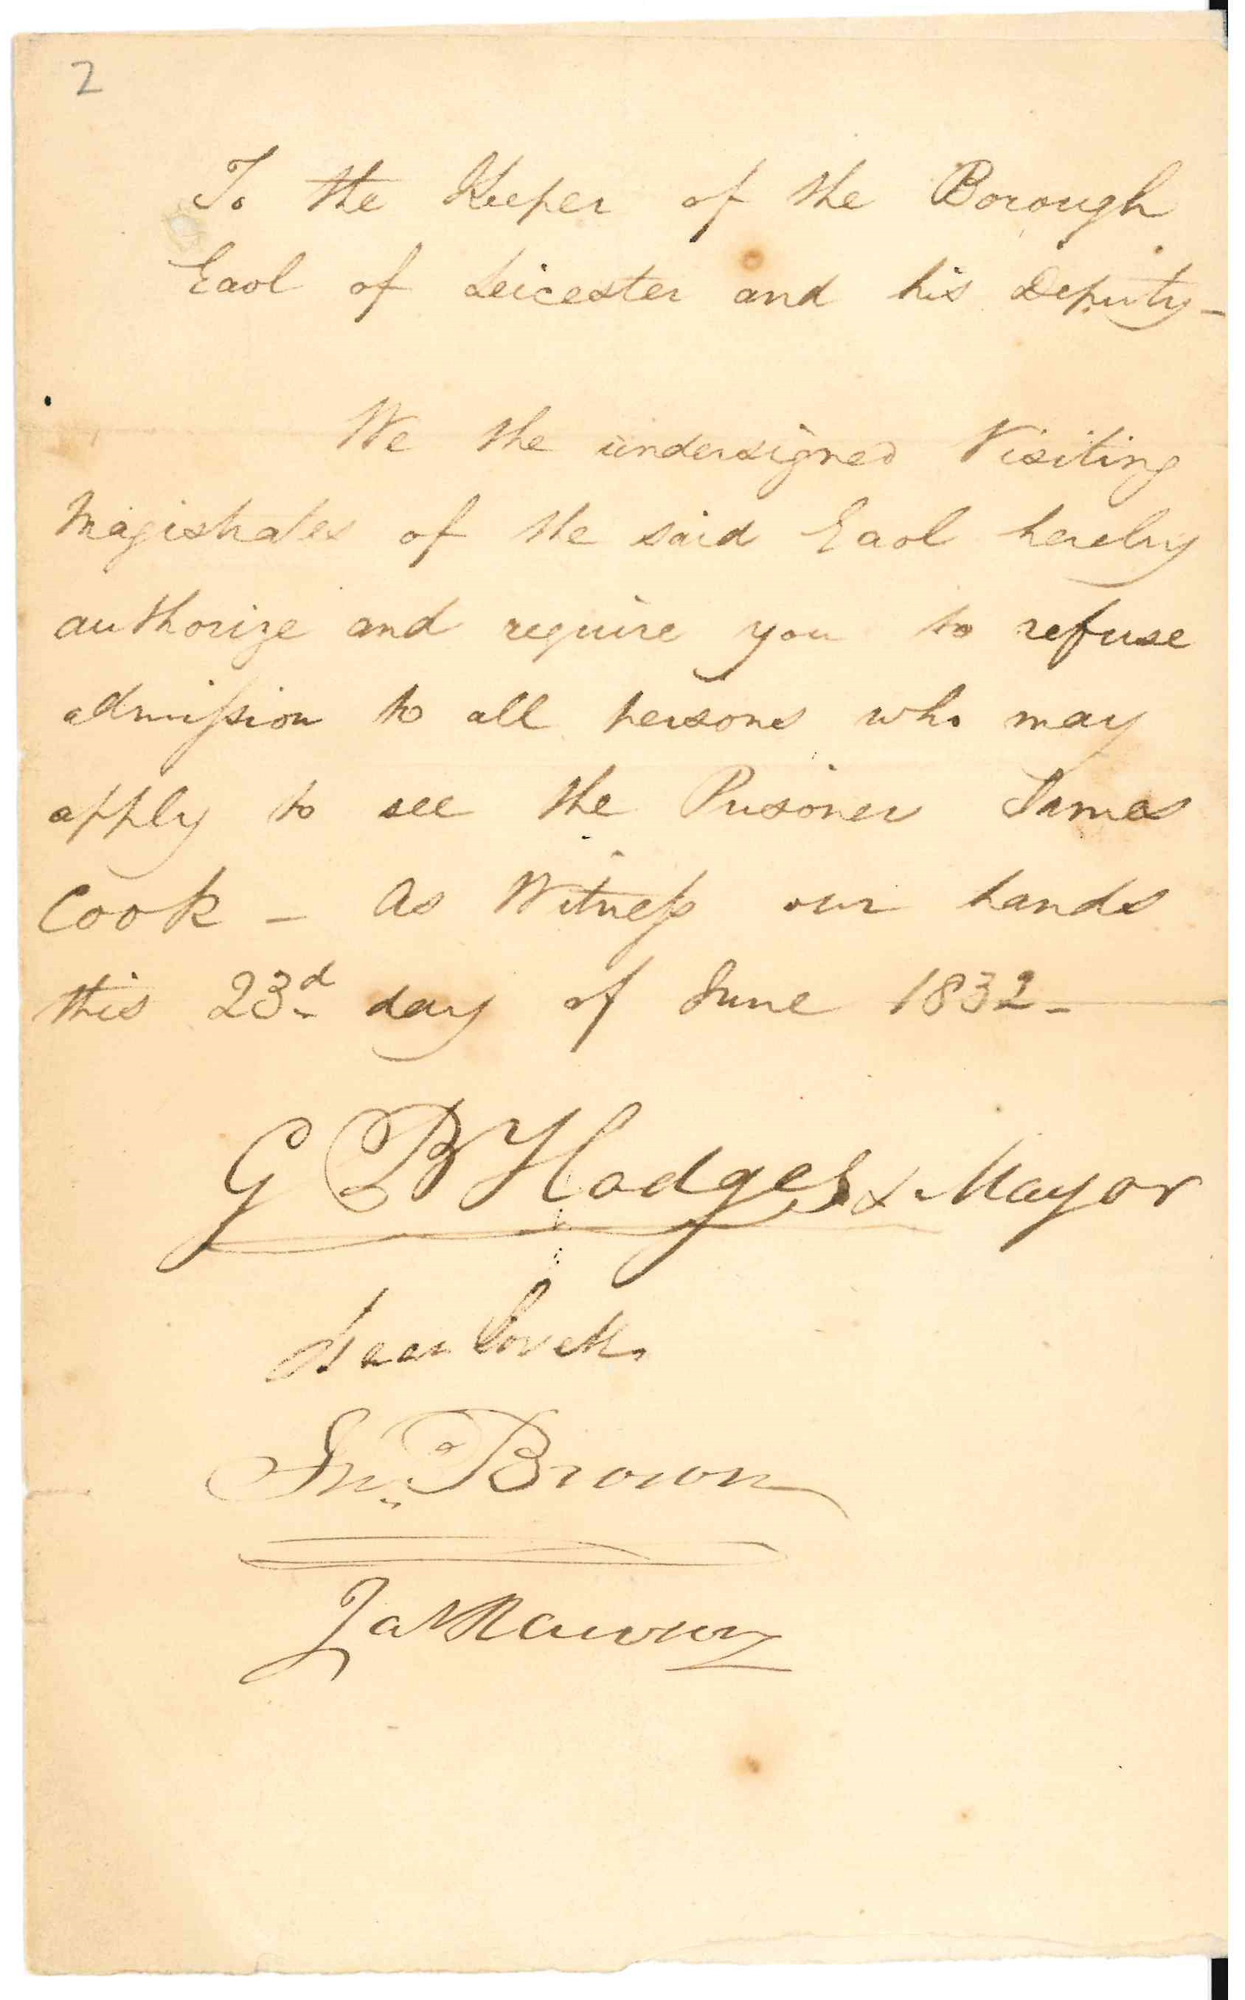 2
To the Keeper of the Borough
Gaol of Leicester and his Deputy —
We the undersigned Visiting
Magistrates of the said Gaol hereby
authorize and require you to refuse
admission to all persons who may
apply to see the Prisoner James
Cook — As Witness our hands
this 23d day of June 1832 —
G B Hodges Mayor
Isaac Lovell
Jno. Brown
Jas Rawson